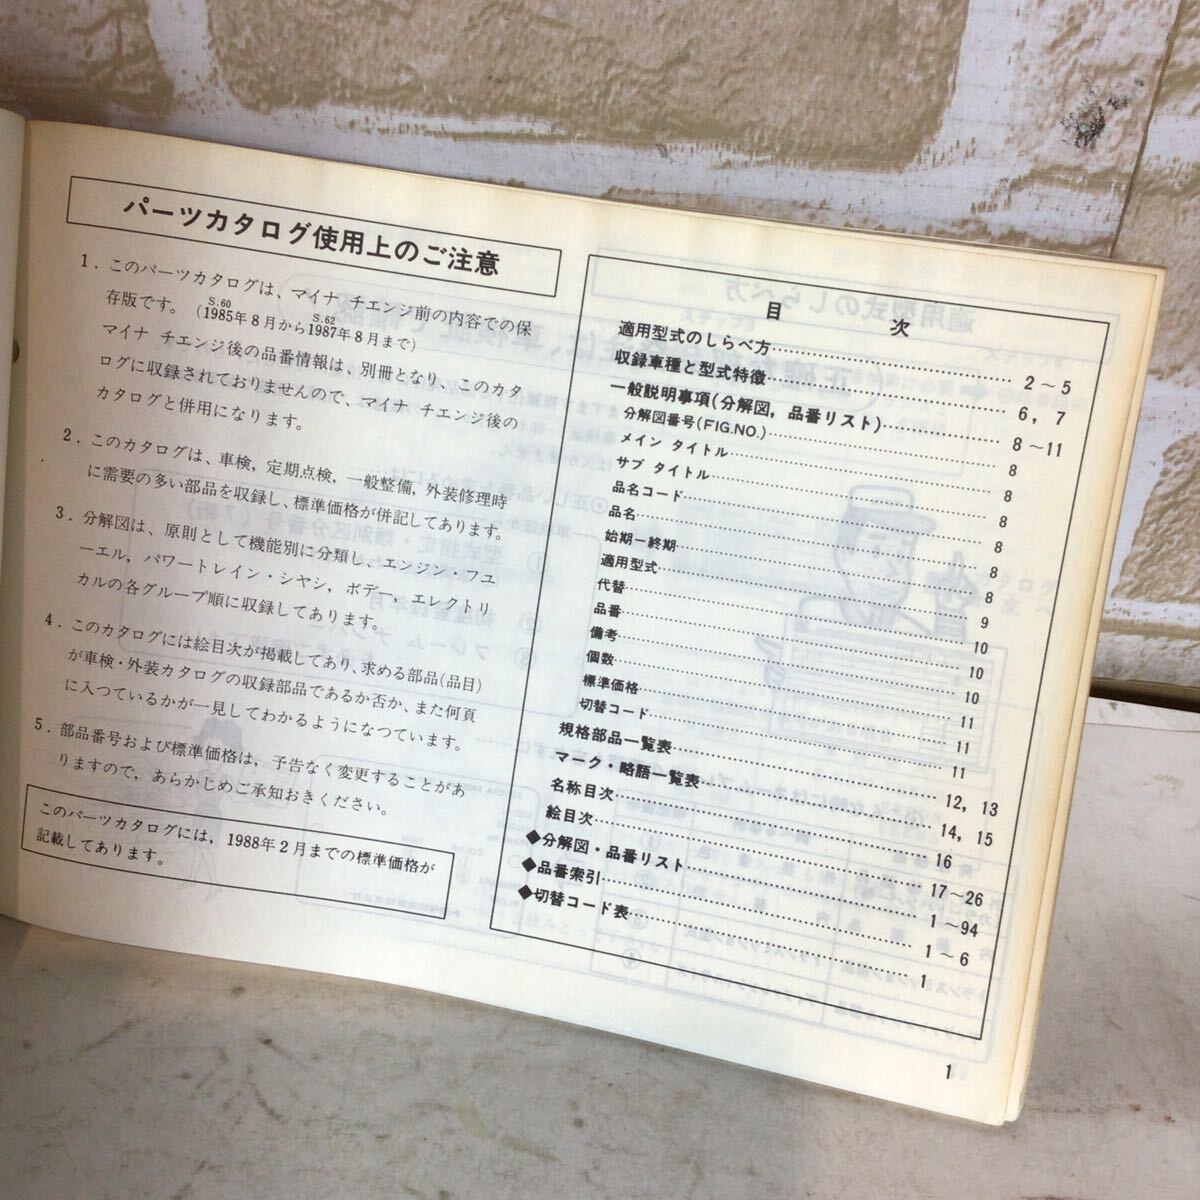 パーツカタログ使用上のご注意
1．このパーツカタログは、マイナ チエンジ前の内容での保
存版です。（1985年8月から1987年8月まで）
S.60 S.62
マイナ チエンジ後の品番情報は、別冊となり、このカタ
ログに収録されておりませんので、マイナ チエンジ後の
カタログと併用になります。
2．このカタログは、車検，定期点検，一般整備，外装修理時
に需要の多い部品を収録し、標準価格が併記してあります。
3．分解図は、原則として機能別に分類し、エンジン・フユ
ーエル，パワートレイン・シヤシ，ボデー，エレクトリ
カルの各グループ順に収録してあります。
4．このカタログには絵目次が掲載してあり、求める部品(品目)
が車検・外装カタログの収録部品であるか否か、また何頁
に入つているかが一見してわかるようになつています。
5．部品番号および標準価格は，予告なく変更することがあ
りますので，あらかじめご承知おきください。
このパーツカタログには，1988年2月までの標準価格が
記載してあります。
目 次
適用型式のしらべ方 2～5
収録車種と型式特徴 6，7
一般説明事項(分解図，品番リスト) 8～11
分解図番号(FIG.NO.) 8
メイン タイトル 8
サブ タイトル 8
品名コード 8
品名 8
始期－終期 8
適用型式 8
代替 9
品番 10
備考 10
個数 10
標準価格 11
切替コード 11
規格部品一覧表 11
マーク・略語一覧表 12，13
名称目次 14，15
絵目次 16
◆分解図・品番リスト 17～26
◆品番索引 1～94
◆切替コード表 1～6
1
1